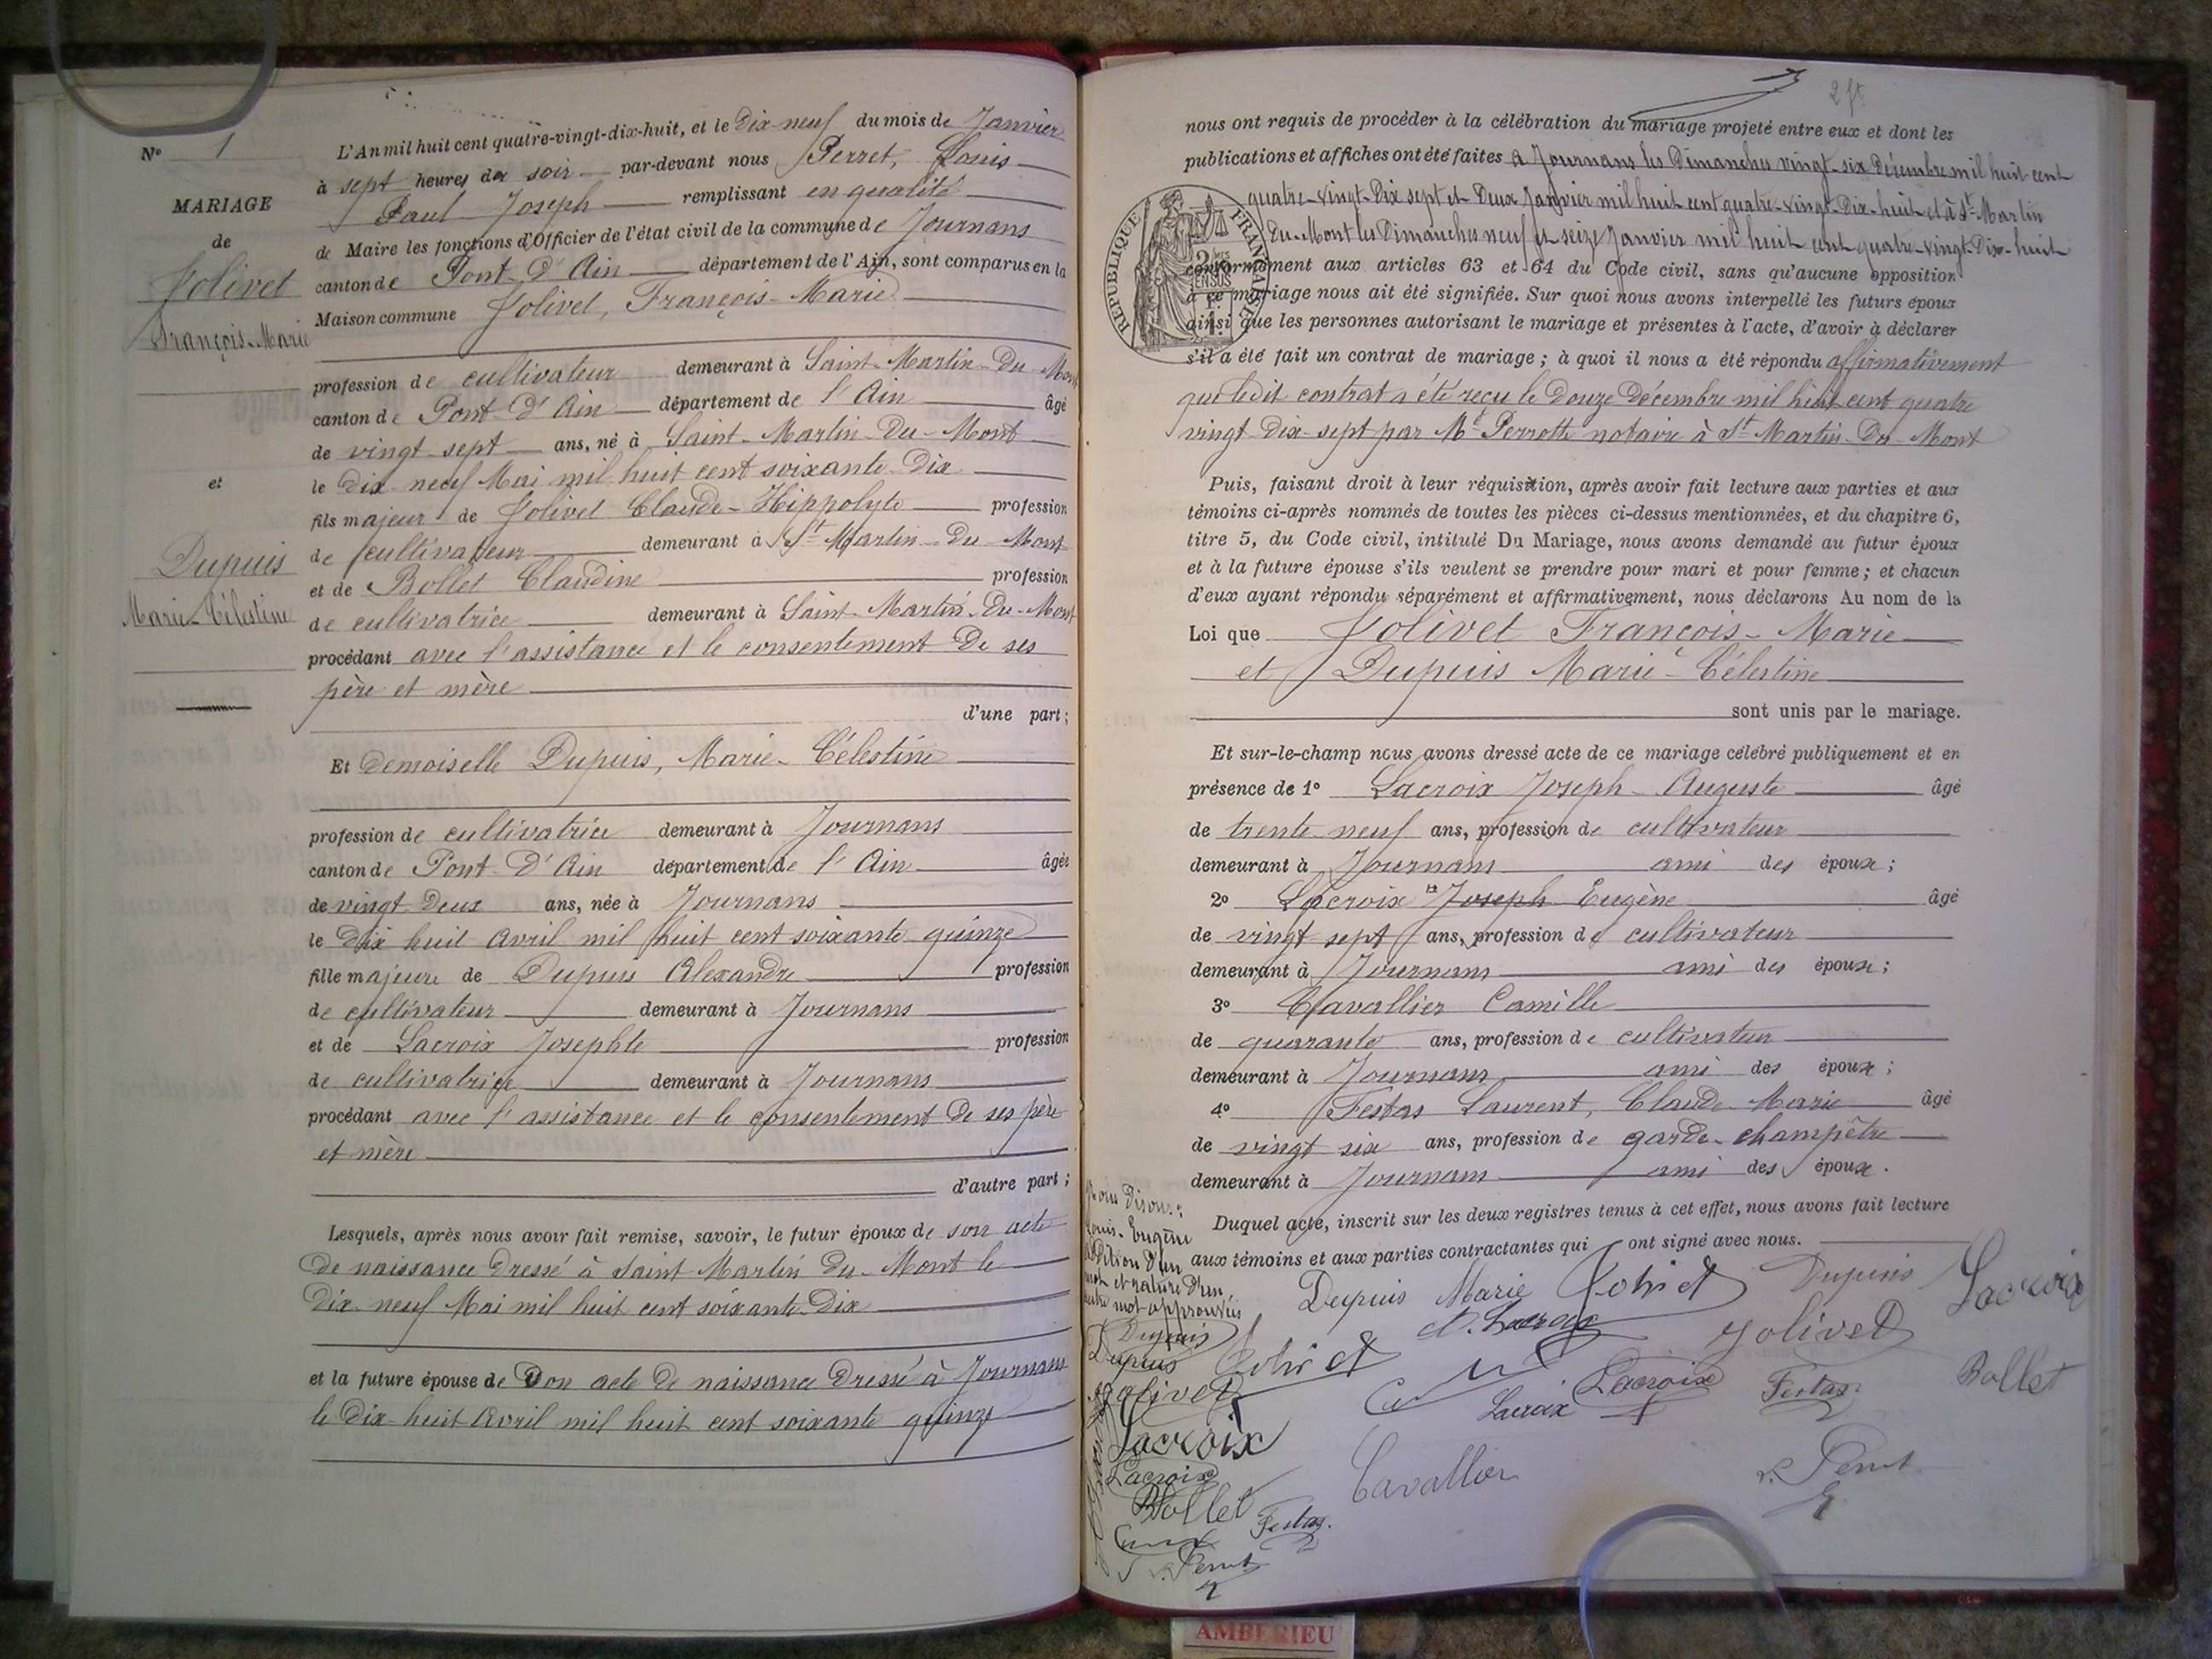 N° 1
MARIAGE
de
Jolivet
François-Marie
et
Dupuis
Marie-Célestine
L'An mil huit cent quatre-vingt-dix-huit, et le Dix-neuf du mois de Janvier
à sept heures du soir par-devant nous Perret, Louis
Paul Joseph remplissant en qualité
de Maire les fonctions d'Officier de l'état civil de la commune de Journans
canton de Pont-D'Ain département de l'Ain, sont comparus en la
Maison commune Jolivet, François-Marie
profession de cultivateur demeurant à Saint-Martin-Du-Mont
canton de Pont-D'Ain département de l'Ain âgé
de vingt-sept ans, né à Saint-Martin-Du-Mont
le Dix neuf Mai mil huit cent soixante-Dix
fils majeur de Jolivet Claude-Hippolyte profession
de cultivateur demeurant à St Martin-Du-Mont
et de Bollet Claudine profession
de cultivatrice demeurant à Saint-Martin-Du-Mont
procédant avec l'assistance et le consentement De ses
père et mère
d'une part;
Et Demoiselle Dupuis, Marie-Célestine
profession de cultivatrice demeurant à Journans
canton de Pont-D'Ain département de l'Ain âgée
de vingt Deux ans, née à Journans
le Dix huit Avril mil huit cent soixante quinze
fille majeure de Dupuis Alexandre profession
de cultivateur demeurant à Journans
et de Lacroix Josephte profession
de cultivatrice demeurant à Journans
procédant avec l'assistance et le consentement De ses père
et mère
d'autre part;
Lesquels, après nous avoir fait remise, savoir, le futur époux de son acte
De naissance Dressé à Saint Martin Du-Mont le
Dix-neuf Mai mil huit cent soixante-Dix
et la future épouse de son acte De naissance Dressé à Journans
le Dix-huit Avril mil huit cent soixante quinze
2 ft
nous ont requis de procéder à la célébration du mariage projeté entre eux et dont les
publications et affiches ont été faites à Journans les Dimanches vingt-six Décembre mil huit cent
quatre-vingt-Dix sept et Deux Janvier mil huit cent quatre-vingt-Dix-huit et à St-Martin
Du-Mont les Dimanches neuf et seize Janvier mil huit cent quatre-vingt-Dix-huit
conformément aux articles 63 et 64 du Code civil, sans qu'aucune opposition
à ce mariage nous ait été signifiée. Sur quoi nous avons interpellé les futurs époux
ainsi que les personnes autorisant le mariage et présentes à l'acte, d'avoir à déclarer
s'il a été fait un contrat de mariage; à quoi il nous a été répondu affirmativement
que ledit contrat a été reçu le Douze Décembre mil huit cent quatre
vingt-Dix-sept par Me Perrotte notaire à St Martin-Du-Mont
RÉPUBLIQUE FRANÇAISE
Puis, faisant droit à leur réquisition, après avoir fait lecture aux parties et aux
témoins ci-après nommés de toutes les pièces ci-dessus mentionnées, et du chapitre 6,
titre 5, du Code civil, intitulé Du Mariage, nous avons demandé au futur époux
et à la future épouse s'ils veulent se prendre pour mari et pour femme; et chacun
d'eux ayant répondu séparément et affirmativement, nous déclarons Au nom de la
Loi que Jolivet François-Marie
et Dupuis Marie-Célestine
sont unis par le mariage.
Et sur-le-champ nous avons dressé acte de ce mariage célébré publiquement et en
présence de 1° Lacroix Joseph-Auguste âgé
de trente neuf ans, profession de cultivateur
demeurant à Journans ami des époux;
2° Lacroix Joseph Eugène âgé
de vingt sept ans, profession de cultivateur
demeurant à Journans ami des époux;
3° Cavallier Camille
de quarante ans, profession de cultivateur
demeurant à Journans ami des époux;
4° Festas Laurent, Claude-Marie âgé
de vingt six ans, profession de garde-champêtre
demeurant à Journans ami des époux.
Duquel acte, inscrit sur les deux registres tenus à cet effet, nous avons fait lecture
aux témoins et aux parties contractantes qui ont signé avec nous.
Nous Disons:
Louis-Eugène
addition d'un
mot et rature d'un
autre mot approuvées
Dupuis Marie Jolivet Dupuis Lacroix
Jolivet
Lacroix Lacroix Festas Bollet
Cavallier
L. Perret
Dupuis
Dupuis
Jolivet
Jolivet
Lacroix
Lacroix
Bollet
Festas
L. Perret
AMBERIEU